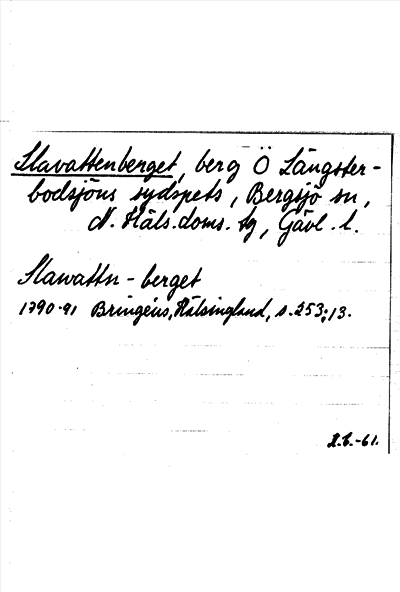 Slavattenberget, berg Ö Långster-
bodsjöns sydspets, Bergsjö sn,
N. Häls. doms. tg, Gävl. l.
Slawattn-berget
1790-91 Bringéus, Hälsingland, s. 253; 13.
-61.